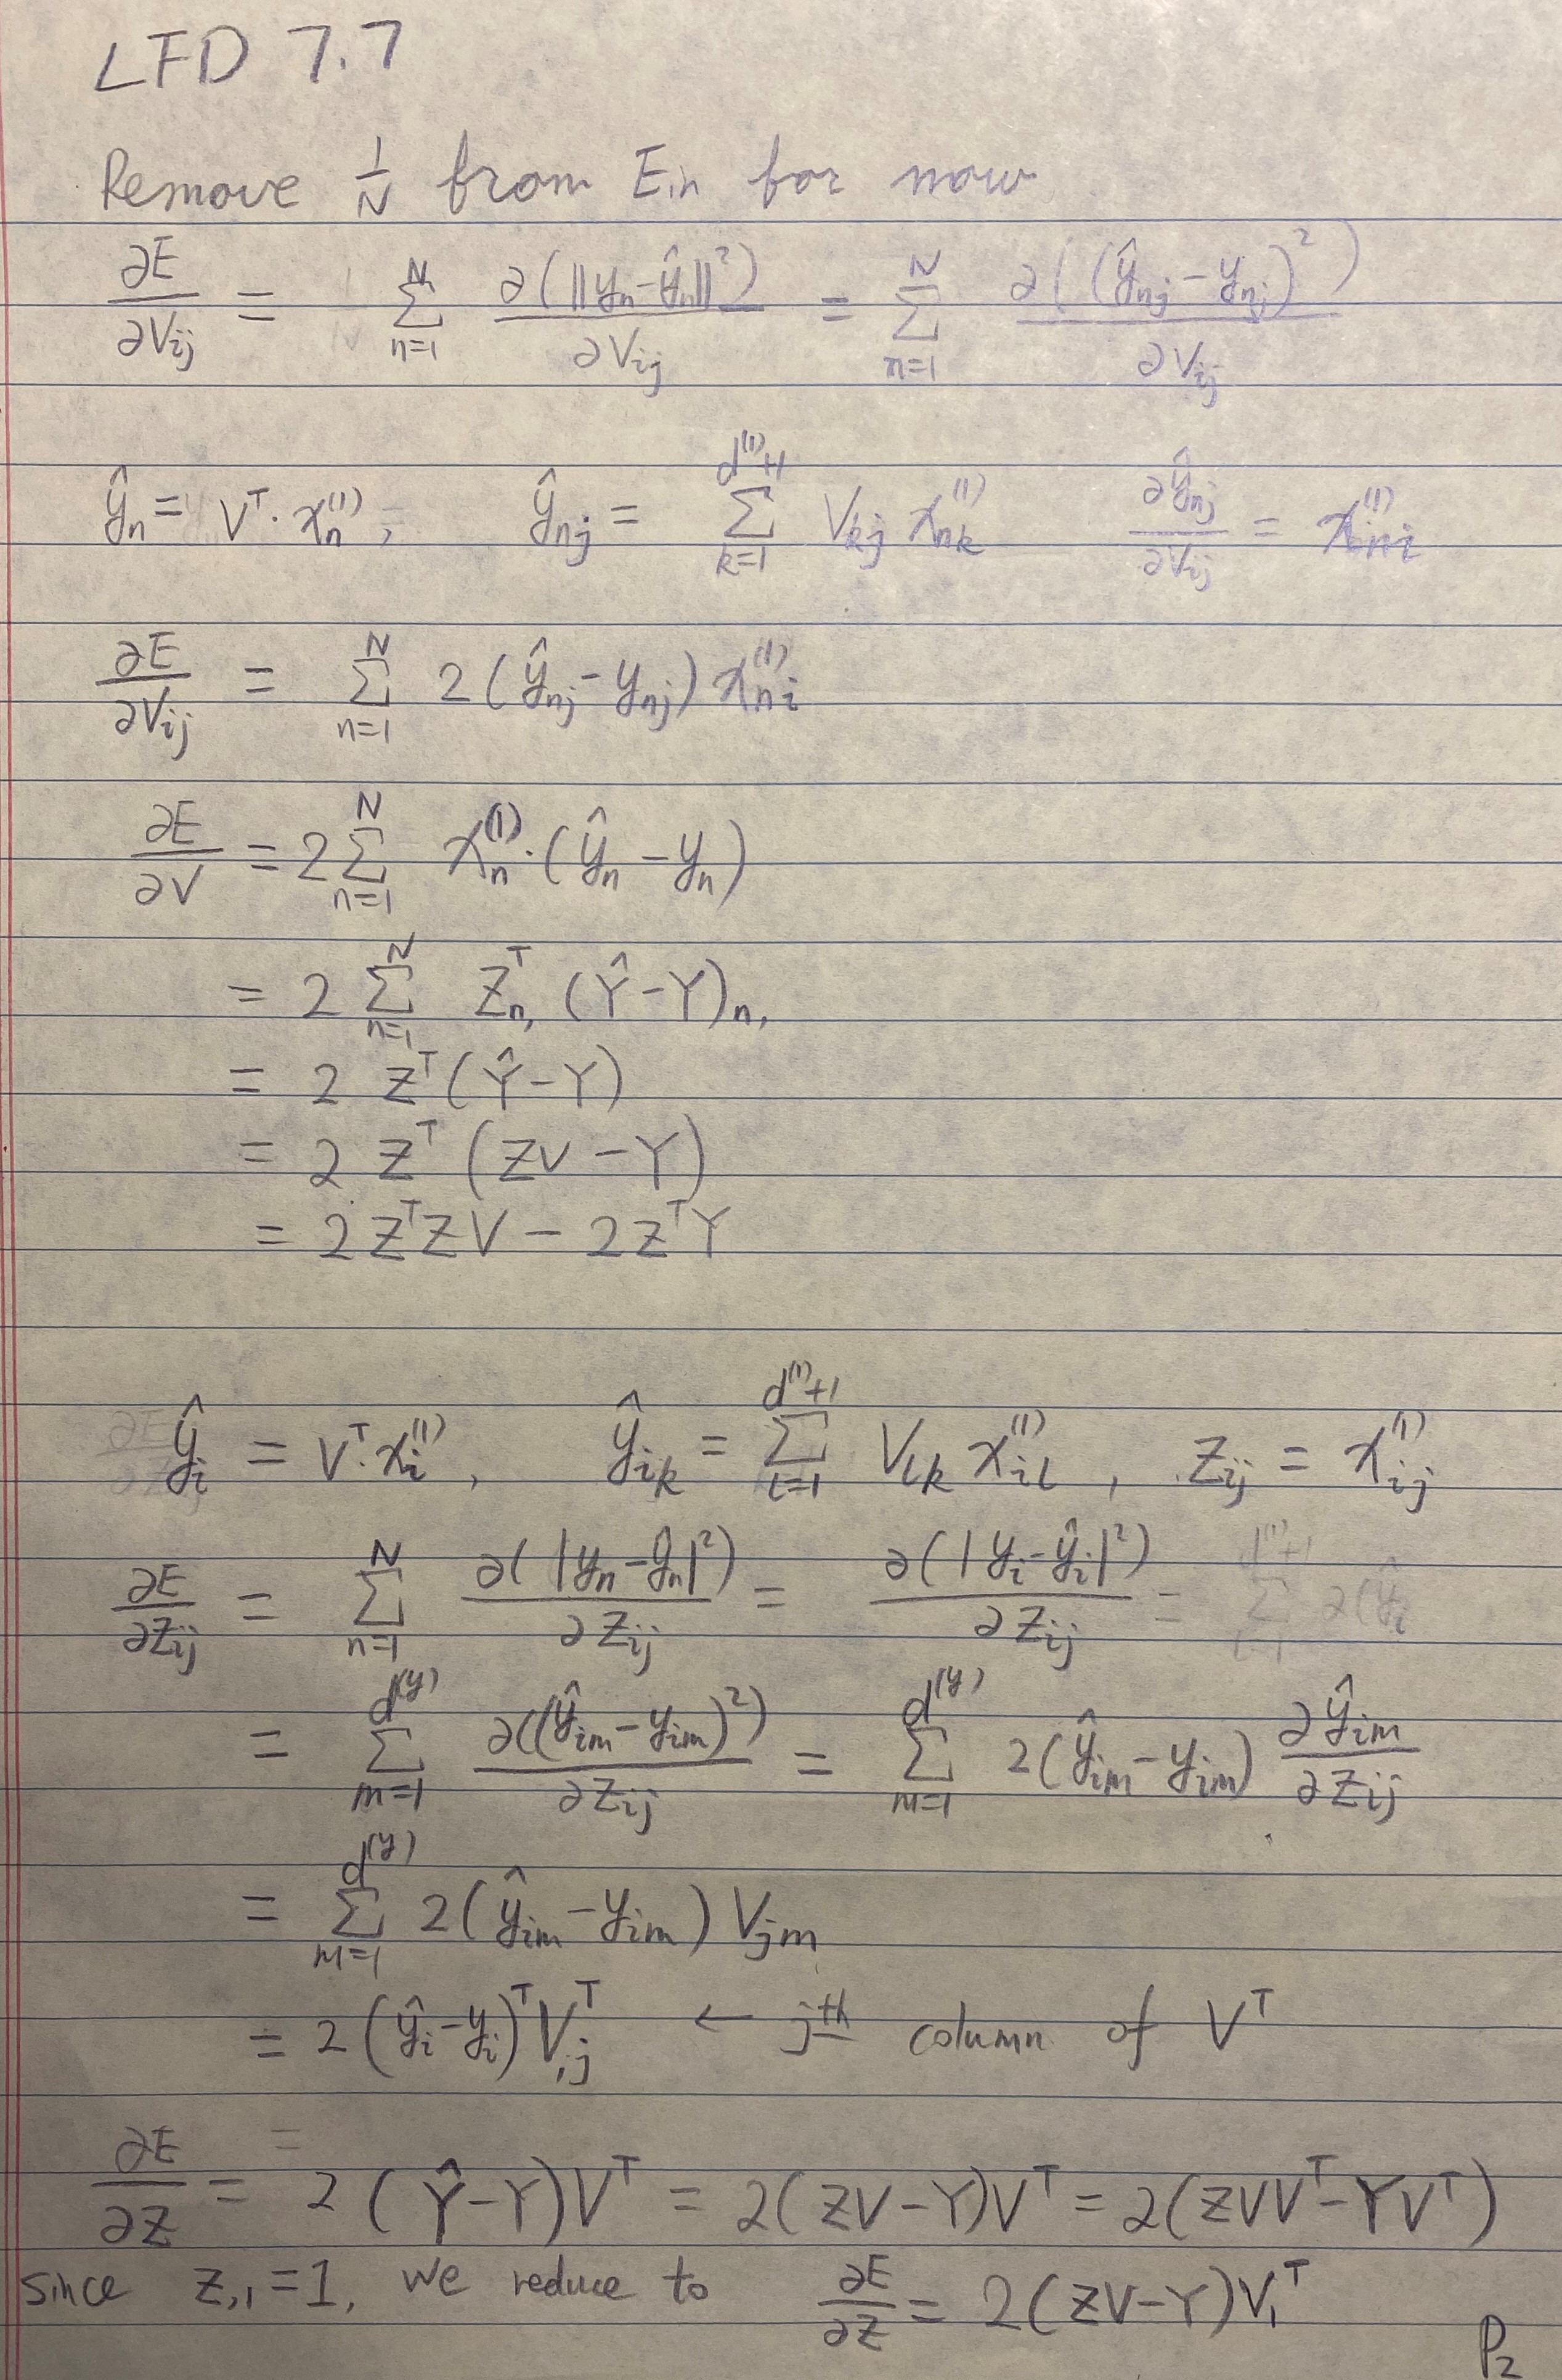 LFD 7.7
Remove 1/N from Ein for now
∂E/∂Vij = Σ_{n=1}^{N} ∂(||yn-ŷn||²)/∂Vij = Σ_{n=1}^{N} ∂((ŷnj-ynj)²)/∂Vij
ŷn = V^T · xn^(1), ŷnj = Σ_{k=1}^{d^(1)+1} Vkj xnk^(1) ∂ŷnj/∂Vij = xni^(1)
∂E/∂Vij = Σ_{n=1}^{N} 2(ŷnj-ynj) xni^(1)
∂E/∂V = 2 Σ_{n=1}^{N} xn^(1) · (ŷn-yn)
= 2 Σ_{n=1}^{N} Z^T_{n,} (Ŷ-Y)_{n,}
= 2 Z^T (Ŷ-Y)
= 2 Z^T (ZV-Y)
= 2Z^TZV - 2Z^TY
ŷi = V^T · xi^(1), ŷik = Σ_{l=1}^{d^(1)+1} Vlk xil^(1), Zij = xij^(1)
∂E/∂Zij = Σ_{n=1}^{N} ∂(|yn-ŷn|²)/∂Zij = ∂(|yi-ŷi|²)/∂Zij
= Σ_{m=1}^{d^(y)} ∂((ŷim-yim)²)/∂Zij = Σ_{m=1}^{d^(y)} 2(ŷim-yim) ∂ŷim/∂Zij
= Σ_{m=1}^{d^(y)} 2(ŷim-yim) Vjm
= 2(ŷi-yi)^T V^T_{,j} ← jth column of V^T
∂E/∂Z = 2(Ŷ-Y)V^T = 2(ZV-Y)V^T = 2(ZVV^T-YV^T)
since Z,1=1, we reduce to ∂E/∂Z = 2(ZV-Y)V1^T
P2